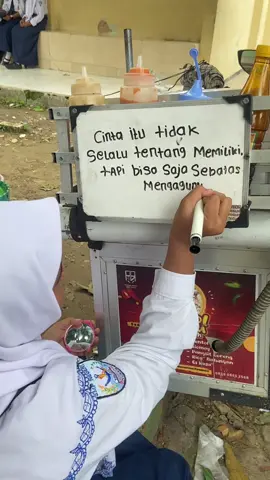 Cinta itu tidak
Selalu tentang Memiliki,
tApi bisa Saja Sebatas
Mengagumi